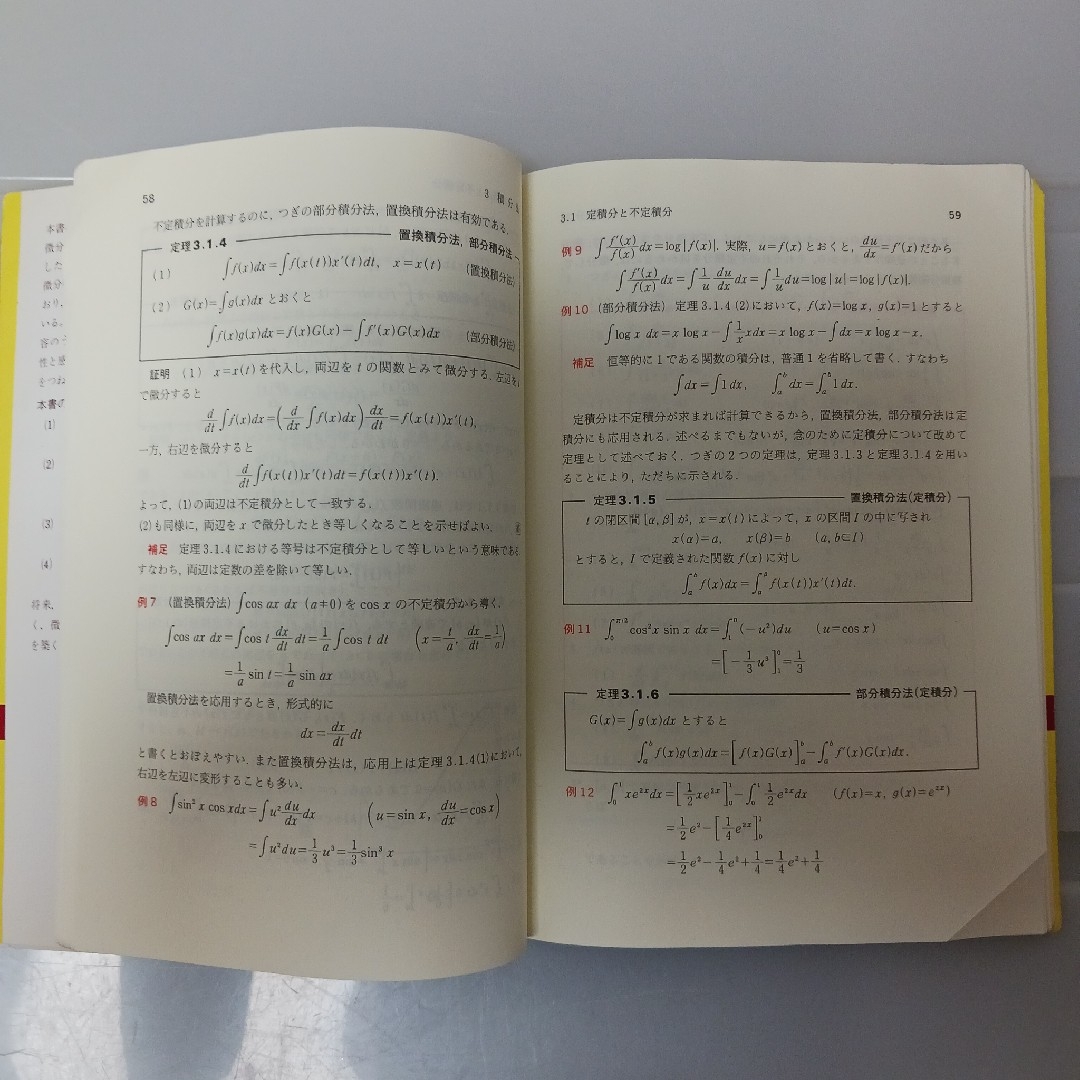 本書
微分
した
微分
おり,
いる.
容の
性と
をつね
本書の
(1)
(2)
(3)
(4)
将来,
く, 微
を築く
58
3 積分
不定積分を計算するのに, つぎの部分積分法, 置換積分法は有効である.
定理3.1.4 置換積分法, 部分積分法
(1) ∫f(x)dx=∫f(x(t))x′(t)dt, x=x(t) (置換積分法)
(2) G(x)=∫g(x)dx とおくと
∫f(x)g(x)dx=f(x)G(x)−∫f′(x)G(x)dx (部分積分法)
証明 (1) x=x(t)を代入し, 両辺を t の関数とみて微分する. 左辺を
で微分すると
d/dt ∫f(x)dx=(d/dx ∫f(x)dx)dx/dt=f(x(t))x′(t),
一方, 右辺を微分すると
d/dt ∫f(x(t))x′(t)dt=f(x(t))x′(t).
よって, (1)の両辺は不定積分として一致する.
(2)も同様に, 両辺を x で微分したとき等しくなることを示せばよい.
補足 定理3.1.4における等号は不定積分として等しいという意味である
すなわち, 両辺は定数の差を除いて等しい.
例7 (置換積分法) ∫cos ax dx (a≠0) を cos x の不定積分から導く.
∫cos ax dx=∫cos t dx/dt dt=1/a ∫cos t dt (x=t/a, dx/dt=1/a)
=1/a sin t=1/a sin ax
置換積分法を応用するとき, 形式的に
dx=dx/dt dt
と書くとおぼえやすい. また置換積分法は, 応用上は定理3.1.4(1)において,
右辺を左辺に変形することも多い.
例8 ∫sin² x cos xdx=∫u² du/dx dx (u=sin x, du/dx=cos x)
=∫u²du=1/3 u³=1/3 sin³ x
3.1 定積分と不定積分
59
例9 ∫f′(x)/f(x) dx=log|f(x)|. 実際, u=f(x)とおくと, du/dx=f′(x)だから
∫f′(x)/f(x) dx=∫1/u du/dx dx=∫1/u du=log|u|=log|f(x)|.
例10 (部分積分法) 定理3.1.4(2)において, f(x)=log x, g(x)=1とすると
∫log x dx=x log x−∫1/x xdx=x log x−∫dx=x log x−x.
補足 恒等的に1である関数の積分は, 普通1を省略して書く. すなわち
∫dx=∫1dx, ∫_a^b dx=∫_a^b 1dx.
定積分は不定積分が求まれば計算できるから, 置換積分法, 部分積分法は定
積分にも応用される. 述べるまでもないが, 念のために定積分について改めて
定理として述べておく. つぎの2つの定理は, 定理3.1.3と定理3.1.4を用い
ることにより, ただちに示される.
定理3.1.5 置換積分法(定積分)
t の閉区間[α, β]が, x=x(t)によって, x の区間 I の中に写され
x(α)=a, x(β)=b (a, b∈I)
とすると, I で定義された関数 f(x)に対し
∫_a^b f(x)dx=∫_α^β f(x(t))x′(t)dt.
例11 ∫_0^{π/2} cos²x sin x dx=∫_1^0 (−u²)du (u=cos x)
=[−1/3 u³]_1^0=1/3
定理3.1.6 部分積分法(定積分)
G(x)=∫g(x)dx とすると
∫_a^b f(x)g(x)dx=[f(x)G(x)]_a^b−∫_a^b f′(x)G(x)dx.
例12 ∫_0^1 xe^{2x}dx=[1/2 xe^{2x}]_0^1−∫_0^1 1/2 e^{2x}dx (f(x)=x, g(x)=e^{2x})
=1/2 e²−[1/4 e^{2x}]_0^1
=1/2 e²−1/4 e²+1/4=1/4 e²+1/4